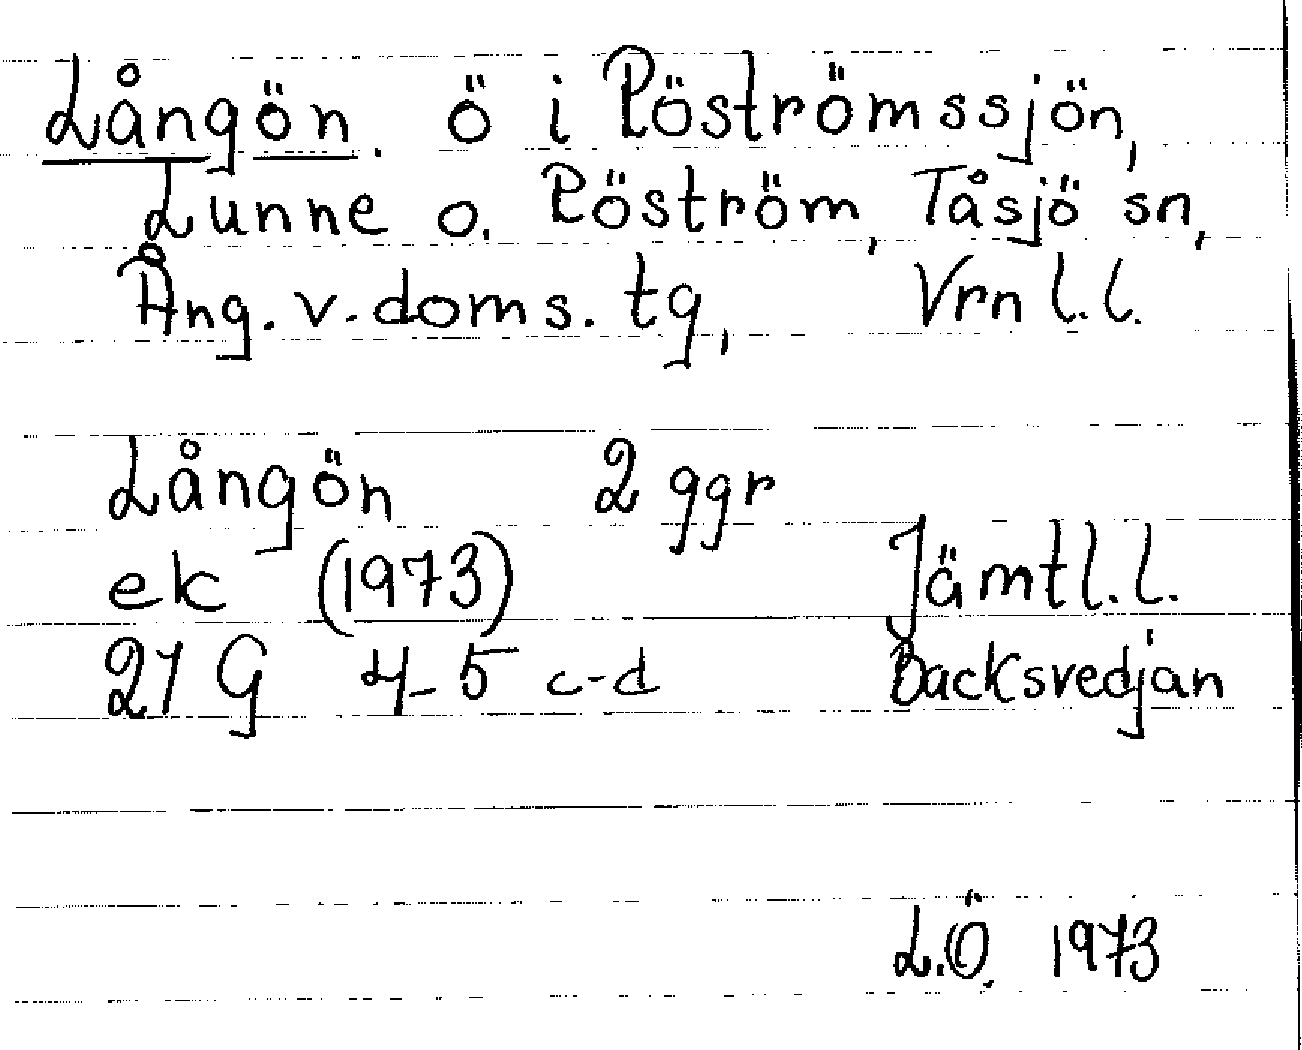 Långön. ö i Röströmssjön,
Lunne o. Röström, Tåsjö sn,
Ång. v. doms. tg, Vrn l.l.
Långön 2 ggr
ek (1973) Jämtl.l.
21 G 4-5 c-d Backsvedjan
L.Ö. 1973